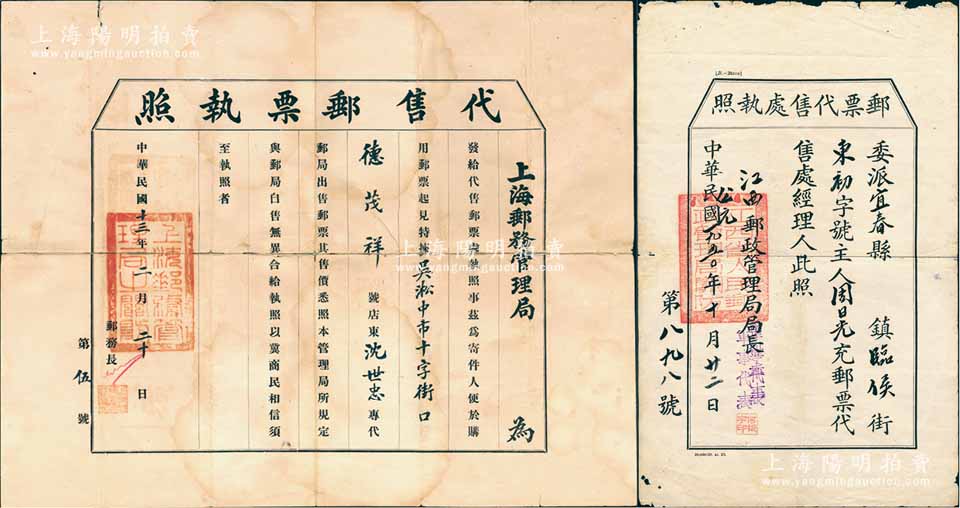 上海陽明拍賣
www.yangmingauction.com
代售郵票執照
上海郵務管理局 為
發給代售郵票執照事茲為寄件人便於購
用郵票起見特揀吳淞中市十字街口
德茂祥 號店東沈世忠專代
郵局出售郵票其售價悉照本管理局所規定
與郵局自售無異合給執照以冀商民相信須
至執照者
中華民國十三年二月二十日
郵務長
第伍號
郵票代售處執照
委派宜春縣 鎮臨侯街
東初字號主人周日光充郵票代
售處經理人此照
江西郵政管理局局長
中華民國
公元一九五〇年十月廿二日
第八九八號
上海陽明拍賣
www.yangmingauction.com